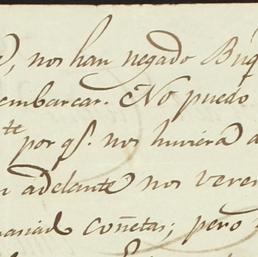 , nos han negado Buq
embarcar. No puedo
te por qs. nos huviera a
adelante nos vere
masiad coñetas; pero